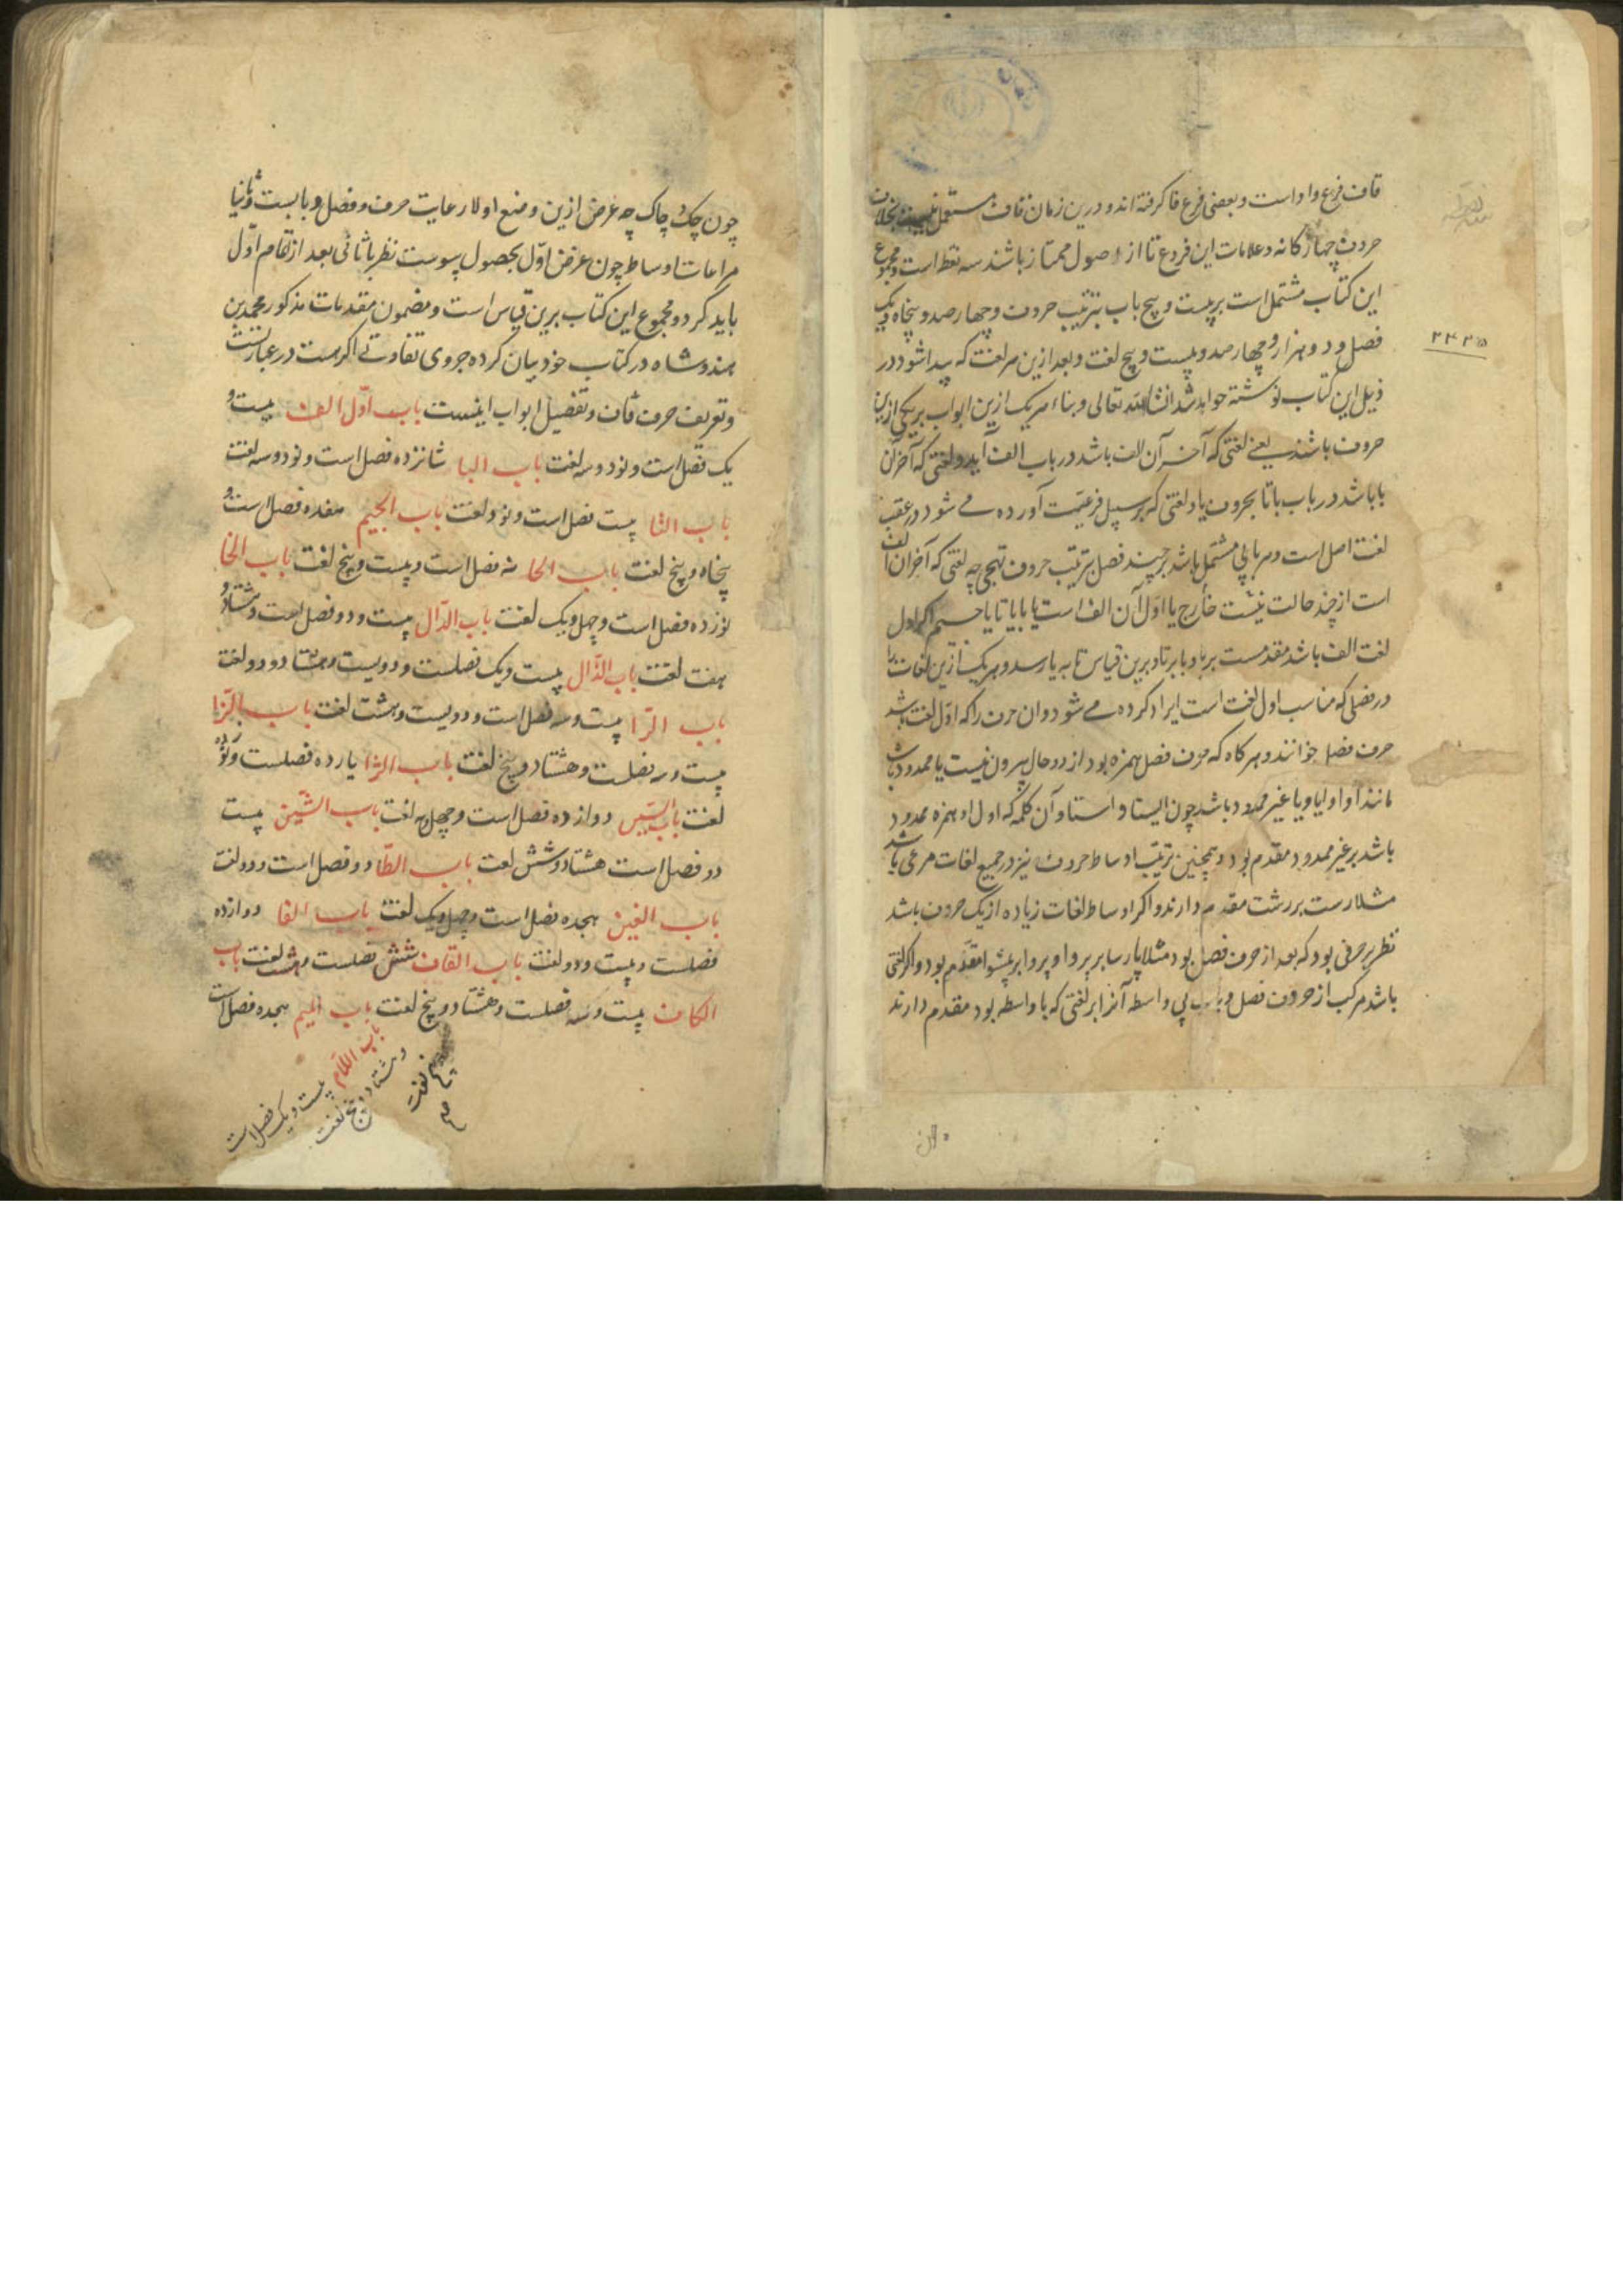 قاف فرع واو است و بعضی فرع فا گرفته‌اند و درین زمان قاف مستعمل نیست بخلاف
حروف چهارکانه و علامات این فروع تا از اصول ممتاز باشند سه نقطه است و مجموع
این کتاب مشتمل است بر بیست و پنج باب بترتیب حروف و چهار صد و پنجاه و یک
فصل و دو هزار و چهار صد و بیست و پنج لغت و بعد ازین هر لغت که پیدا شود در
۲۴۲۵
ذیل این کتاب نوشته خواهد شد انشاالله تعالی و بناء هر یک ازین ابواب بر یکی ازین
حروف باشند یعنے لغتی که آخر آن الف باشد در باب الف آید و لغتی که آخر آن
با باشد در باب با تا بحروف یا و لغتی که بر سبیل فرعیت آورده مے شود در عقب
لغت اصل است و هر بابی مشتمل باشد بر چند فصل بترتیب حروف تهجی چه لغتی که آخر آن الف
است از چند حالت نیست خارج یا اول آن الف است یا با یا تا یا جیم اکر اول
لغت الف باشد مقدمست بر با و با بر تا و برین قیاس تا به یا رسد و هر یک ازین لغات را
در فصلی که مناسب اول لغت است ایراد کرده مے شود و ان حرف را که اول لغت باشد
حرف فصل خوانند و هرکاه که حرف فصل همزه بود از دو حال بیرون نیست یا ممدود باشد
مانند آوا و ایا و یا غیر ممدود باشد چون ایستا و استا و آن کلمه که اول او همزه ممدود
باشد بر غیر ممدود مقدم بود و همچنین ترتیب اوساط حروف نیز در جمیع لغات مرعی باشد
مثلا رست بر رشت مقدم دارند و اکر اوساط لغات زیاده از یک حروف باشد
نظر بر حرفی بود که بعد از حرف فصل بود مثلا پارسا بر پروا و پروا بر پیشوا مقدم بود و اکر لغتی
باشد مرکب از حروف فصل و باب بی واسطه آنرا بر لغتی که با واسطه بود مقدم دارند
چون چک و چاک چه غرض ازین وضع اولا رعایت حرف و فصل و بابست و ثانیا
مراعات اوساط چون غرض اول بحصول پیوست نظر با ثانی بعد از تمام اول
باید کرد و مجموع این کتاب برین قیاس است و مضمون مقدمات مذکور محمد بن
هندوشاه در کتاب خود بیان کرده جزوی تفاوتے اکر هست در عبارتست
و تعریف حرف قاف و تفصیل ابواب اینست باب اول الف بیست و
یک فصل است و نود و سه لغت باب البا شانزده فصل است و نود و سه لغت
باب التا بیست فصل است و نود لغت باب الجیم هفده فصل است و
پنجاه و پنج لغت باب الحا نه فصل است و بیست و پنج لغت باب الخا
نوزده فصل است و چهل و یک لغت باب الدال بیست و دو فصل است و هشتاد و
هفت لغت باب الذال بیست و یک فصلست و دویست و هشتاد و دو لغت
باب الرا بیست و سه فصل است و دویست و هشت لغت باب الزا
بیست و سه فصلست و هشتاد و پنج لغت باب الژا یازده فصلست و نوزده
لغت باب السین دوازده فصل است و چهل و سه لغت باب الشین بیست
دو فصل است هشتاد و شش لغت باب الطا دو فصل است و دو لغت
باب الغین هجده فصل است و چهل و یک لغت باب الفا دوازده
فصلست و بیست و دو لغت باب القاف شش فصلست و هشت لغت باب
الکاف بیست و سه فصلست و هشتاد و پنج لغت باب المیم هجده فصل است
باب اللام بیست و یک فصل است
و هشتاد و پنج لغت